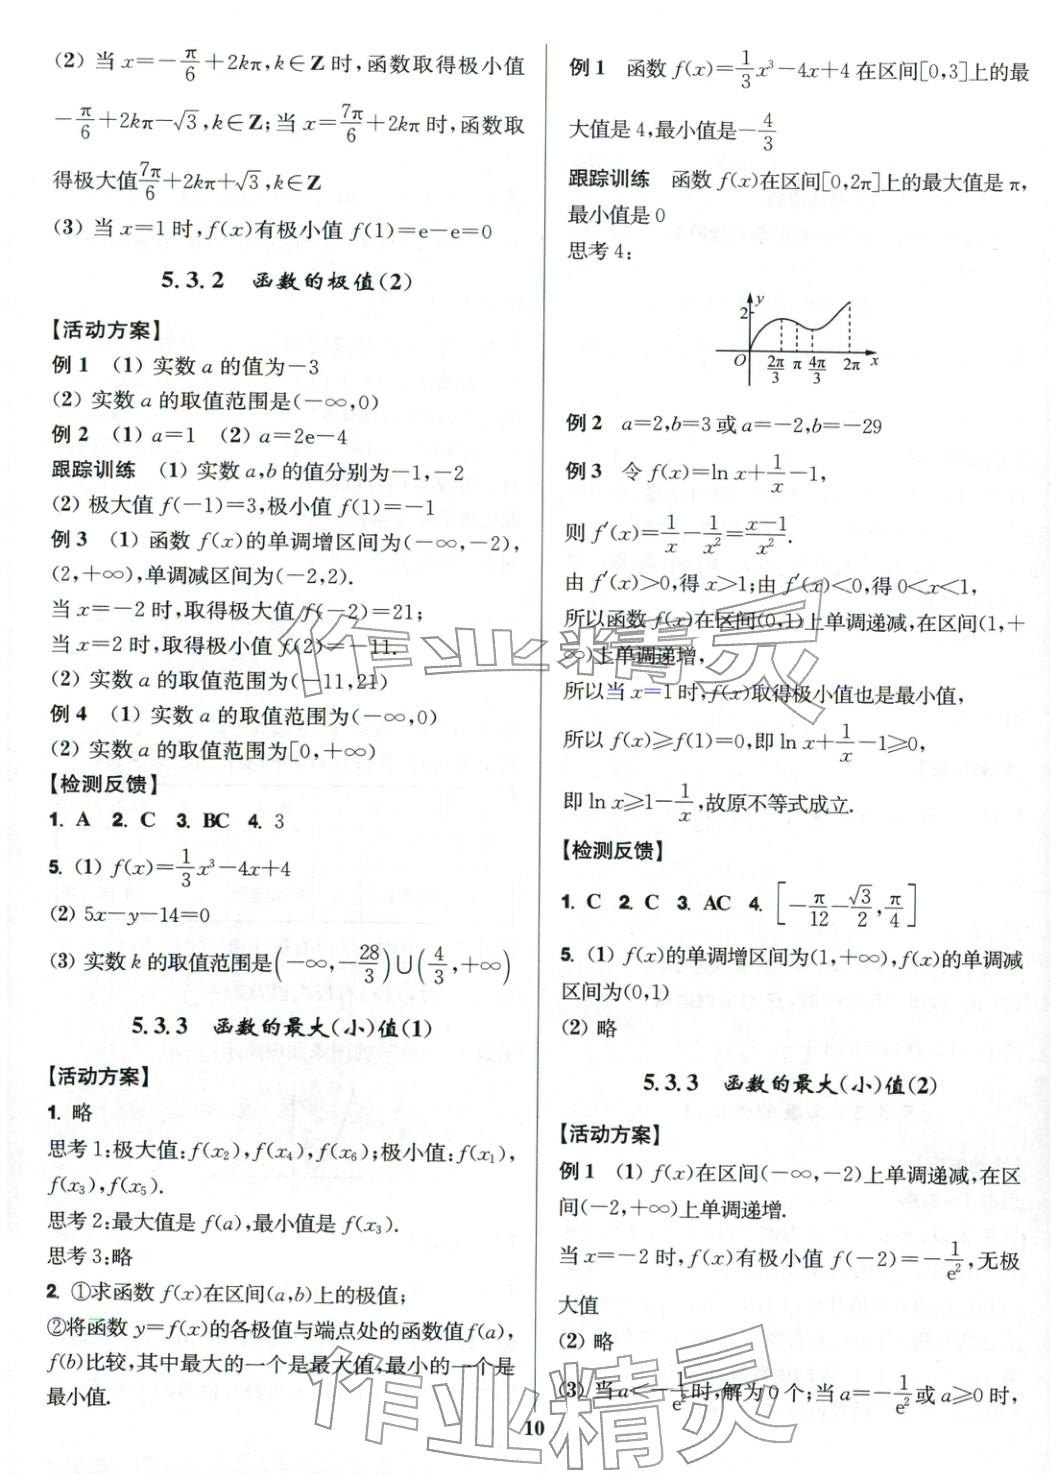 (2) 当 x=-π/6+2kπ,k∈Z 时,函数取得极小值
-π/6+2kπ-√3,k∈Z;当 x=7π/6+2kπ 时,函数取
得极大值7π/6+2kπ+√3,k∈Z
(3) 当 x=1 时,f(x)有极小值 f(1)=e-e=0
5.3.2 函数的极值(2)
【活动方案】
例 1 (1) 实数 a 的值为-3
(2) 实数 a 的取值范围是(-∞,0)
例 2 (1) a=1 (2) a=2e-4
跟踪训练 (1) 实数 a,b 的值分别为-1,-2
(2) 极大值 f(-1)=3,极小值 f(1)=-1
例 3 (1) 函数 f(x)的单调增区间为(-∞,-2),
(2,+∞),单调减区间为(-2,2).
当 x=-2 时,取得极大值 f(-2)=21;
当 x=2 时,取得极小值 f(2)=-11.
(2) 实数 a 的取值范围为(-11,21)
例 4 (1) 实数 a 的取值范围为(-∞,0)
(2) 实数 a 的取值范围为[0,+∞)
【检测反馈】
1. A 2. C 3. BC 4. 3
5. (1) f(x)=1/3x³-4x+4
(2) 5x-y-14=0
(3) 实数 k 的取值范围是(-∞,-28/3)∪(4/3,+∞)
5.3.3 函数的最大(小)值(1)
【活动方案】
1. 略
思考 1:极大值:f(x₂),f(x₄),f(x₆);极小值:f(x₁),
f(x₃),f(x₅).
思考 2:最大值是 f(a),最小值是 f(x₃).
思考 3:略
2. ①求函数 f(x)在区间(a,b)上的极值;
②将函数 y=f(x)的各极值与端点处的函数值f(a),
f(b)比较,其中最大的一个是最大值,最小的一个是
最小值.
例 1 函数 f(x)=1/3x³-4x+4 在区间[0,3]上的最
大值是 4,最小值是-4/3
跟踪训练 函数 f(x)在区间[0,2π]上的最大值是 π,
最小值是 0
思考 4:
y
2
O 2π/3 π 4π/3 2π x
例 2 a=2,b=3 或 a=-2,b=-29
例 3 令 f(x)=ln x+1/x-1,
则 f′(x)=1/x-1/x²=(x-1)/x².
由 f′(x)>0,得 x>1;由 f′(x)<0,得 0<x<1,
所以函数 f(x)在区间(0,1)上单调递减,在区间(1,+
∞)上单调递增,
所以当 x=1 时,f(x)取得极小值也是最小值,
所以 f(x)≥f(1)=0,即 ln x+1/x-1≥0,
即 ln x≥1-1/x,故原不等式成立.
【检测反馈】
1. C 2. C 3. AC 4. [-π/12-√3/2,π/4]
5. (1) f(x)的单调增区间为(1,+∞),f(x)的单调减
区间为(0,1)
(2) 略
5.3.3 函数的最大(小)值(2)
【活动方案】
例 1 (1) f(x)在区间(-∞,-2)上单调递减,在区
间(-2,+∞)上单调递增.
当 x=-2 时,f(x)有极小值 f(-2)=-1/e²,无极
大值
(2) 略
(3) 当 a<-1/e²时,解为 0 个;当 a=-1/e²或 a≥0 时,
10
作业精灵
作业精灵